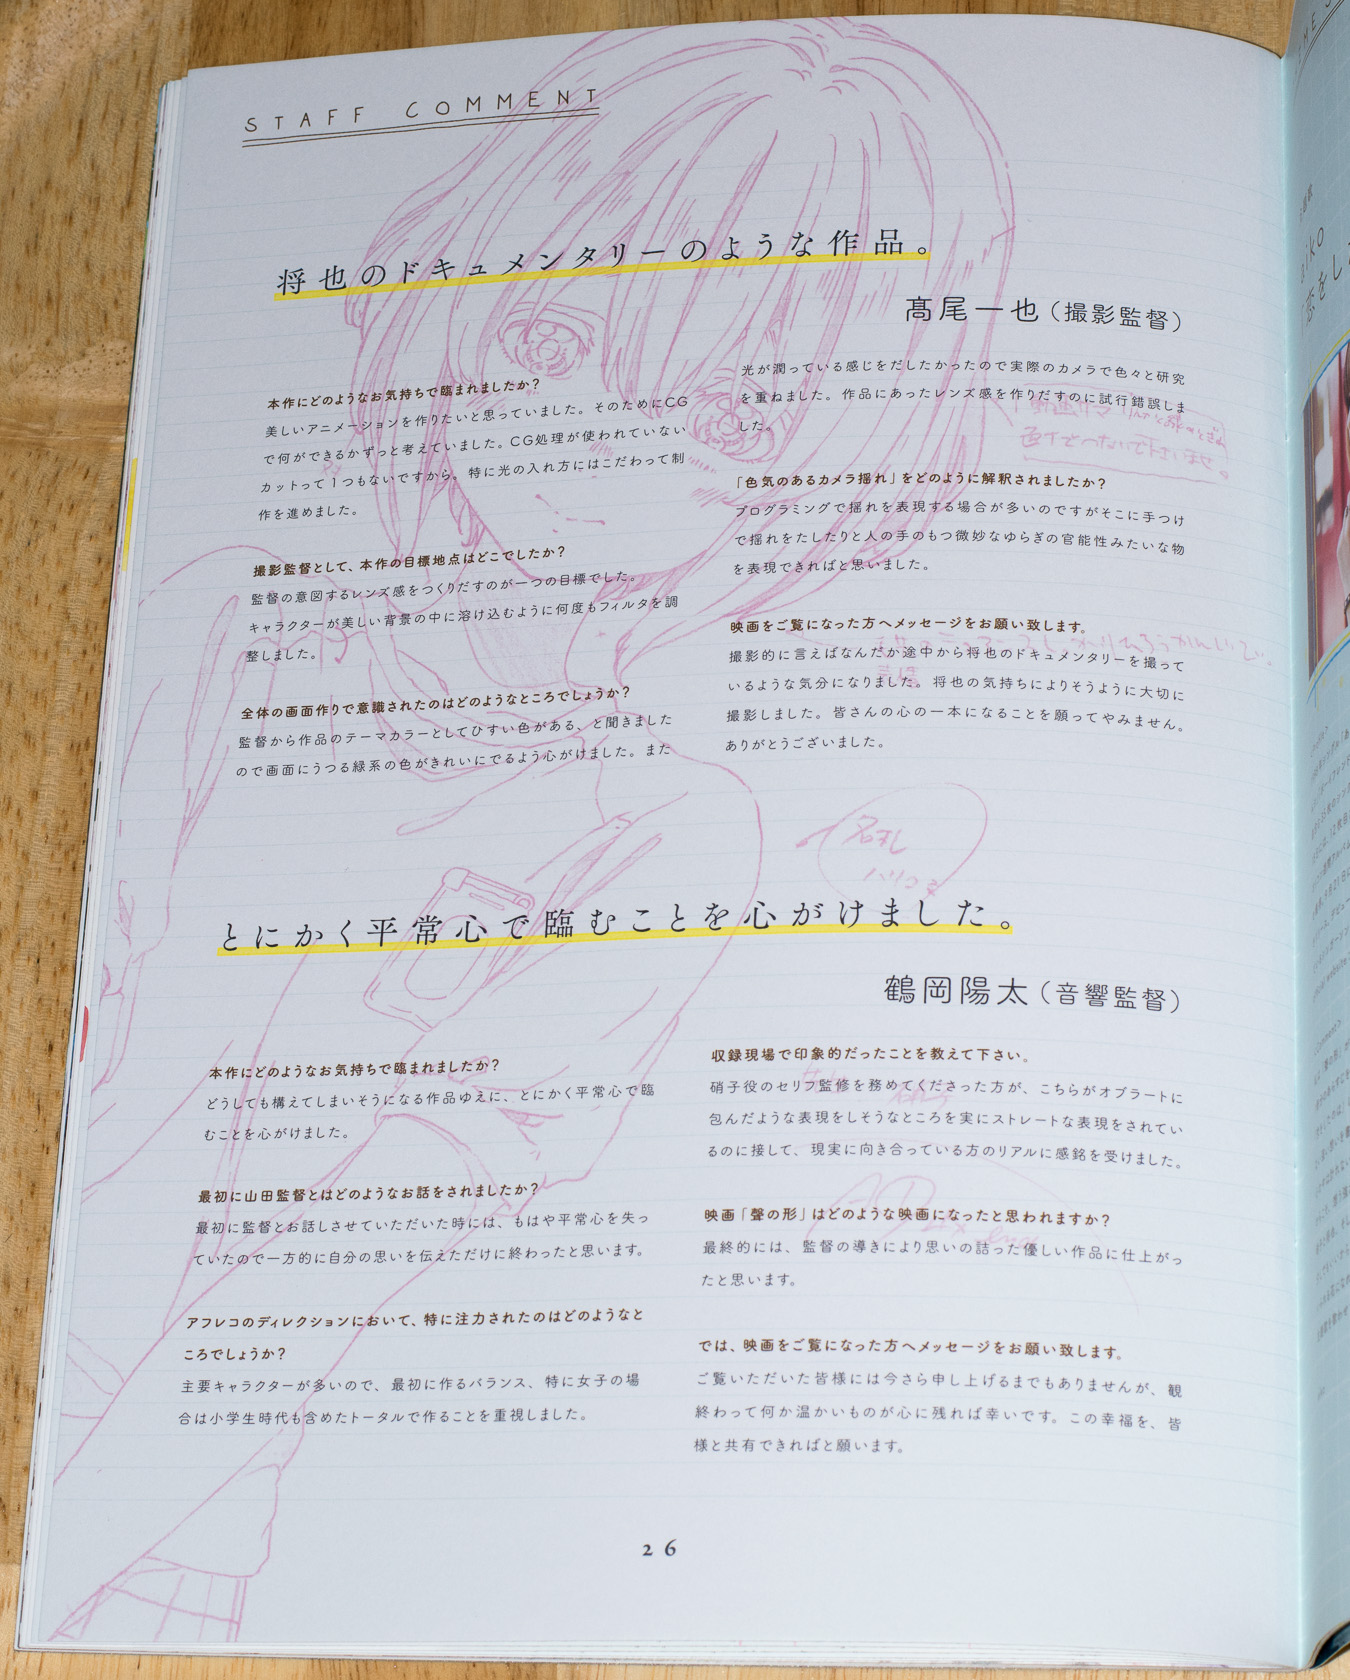 STAFF COMMENT
将也のドキュメンタリーのような作品。
髙尾一也（撮影監督）
本作にどのようなお気持ちで臨まれましたか？
美しいアニメーションを作りたいと思っていました。そのためにCG
で何ができるかずっと考えていました。CG処理が使われていない
カットって１つもないですから。特に光の入れ方にはこだわって制
作を進めました。
撮影監督として、本作の目標地点はどこでしたか？
監督の意図するレンズ感をつくりだすのが一つの目標でした。
キャラクターが美しい背景の中に溶け込むように何度もフィルタを調
整しました。
全体の画面作りで意識されたのはどのようなところでしょうか？
監督から作品のテーマカラーとしてひすい色がある、と聞きました
ので画面にうつる緑系の色がきれいにでるよう心がけました。また
光が潤っている感じをだしたかったので実際のカメラで色々と研究
を重ねました。作品にあったレンズ感を作りだすのに試行錯誤しま
した。
「色気のあるカメラ揺れ」をどのように解釈されましたか？
プログラミングで揺れを表現する場合が多いのですがそこに手つけ
で揺れをたしたりと人の手のもつ微妙なゆらぎの官能性みたいな物
を表現できればと思いました。
映画をご覧になった方へメッセージをお願い致します。
撮影的に言えばなんだか途中から将也のドキュメンタリーを撮って
いるような気分になりました。将也の気持ちによりそうように大切に
撮影しました。皆さんの心の一本になることを願ってやみません。
ありがとうございました。
名札
とにかく平常心で臨むことを心がけました。
鶴岡陽太（音響監督）
本作にどのようなお気持ちで臨まれましたか？
どうしても構えてしまいそうになる作品ゆえに、とにかく平常心で臨
むことを心がけました。
最初に山田監督とはどのようなお話をされましたか？
最初に監督とお話しさせていただいた時には、もはや平常心を失っ
ていたので一方的に自分の思いを伝えただけに終わったと思います。
アフレコのディレクションにおいて、特に注力されたのはどのようなと
ころでしょうか？
主要キャラクターが多いので、最初に作るバランス、特に女子の場
合は小学生時代も含めたトータルで作ることを重視しました。
収録現場で印象的だったことを教えて下さい。
硝子役のセリフ監修を務めてくださった方が、こちらがオブラートに
包んだような表現をしそうなところを実にストレートな表現をされてい
るのに接して、現実に向き合っている方のリアルに感銘を受けました。
映画「聲の形」はどのような映画になったと思われますか？
最終的には、監督の導きにより思いの詰った優しい作品に仕上がっ
たと思います。
では、映画をご覧になった方へメッセージをお願い致します。
ご覧いただいた皆様には今さら申し上げるまでもありませんが、観
終わって何か温かいものが心に残れば幸いです。この幸福を、皆
様と共有できればと願います。
26